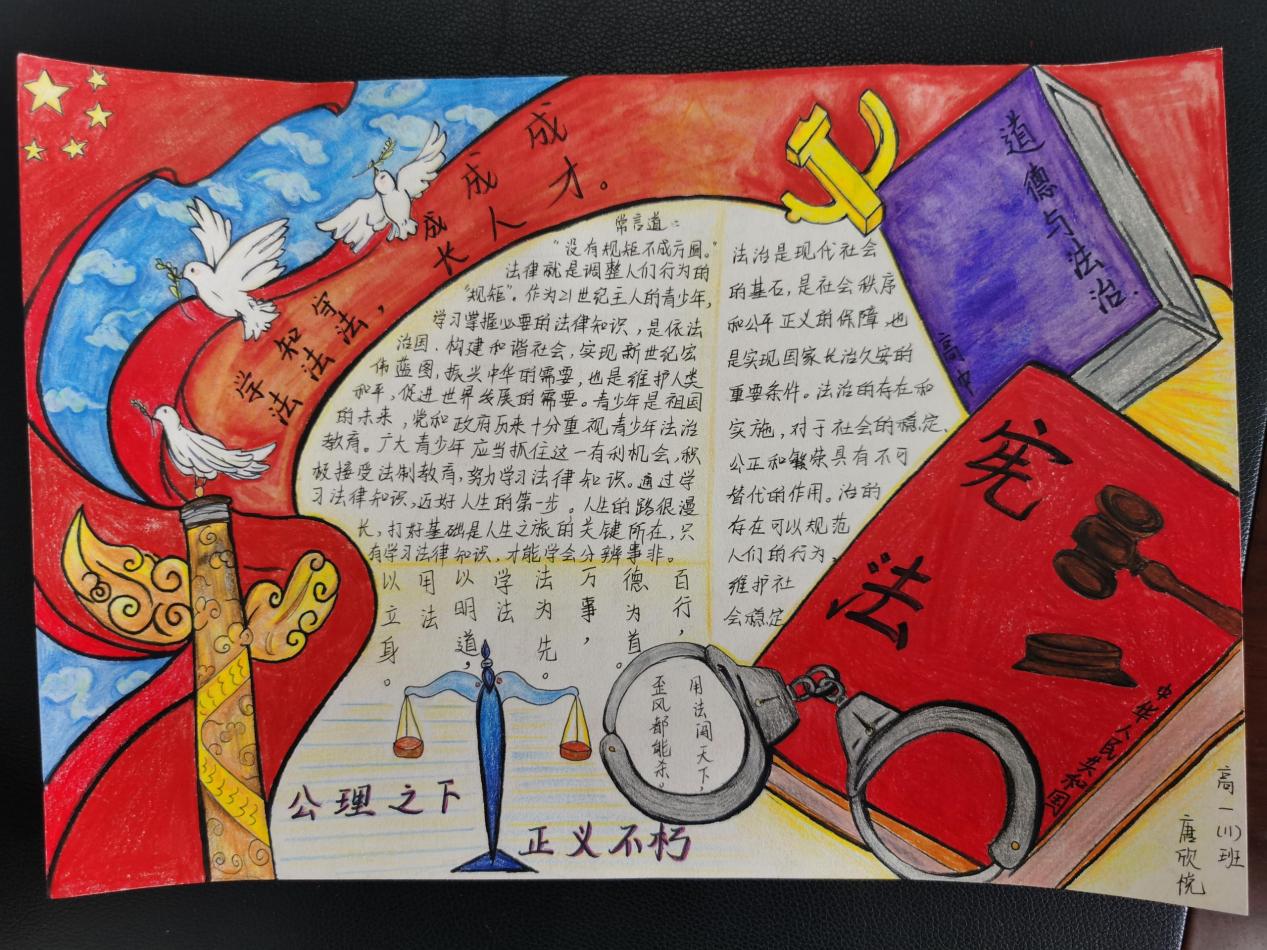 学法知法守法，
成长成人成才。
常言道：
“没有规矩不成方圆。”
法律就是调整人们行为的
“规矩”。作为21世纪主人的青少年，
学习掌握必要的法律知识，是依法
治国、构建和谐社会，实现新世纪宏
伟蓝图，振兴中华的需要，也是维护人类
和平，促进世界发展的需要。青少年是祖国
的未来，党和政府历来十分重视青少年法治
教育。广大青少年应当抓住这一有利机会，积
极接受法制教育，努力学习法律知识。通过学
习法律知识，迈好人生的第一步。人生的路很漫
长，打好基础是人生之旅的关键所在，只
有学习法律知识，才能学会分辨事非。
法治是现代社会
的基石，是社会秩序
和公平正义的保障，也
是实现国家长治久安的
重要条件。法治的存在和
实施，对于社会的稳定、
公正和繁荣具有不可
替代的作用。治的
存在可以规范
人们的行为，
维护社
会稳定
百行，
德为首。
万事，
法为先。
学法
以明道，
用法
以立身。
用法闯天下，
歪风都能杀。
公理之下
正义不朽
道德与法治.
高中
宪法
中华人民共和国
高一（11）班
唐欣悦